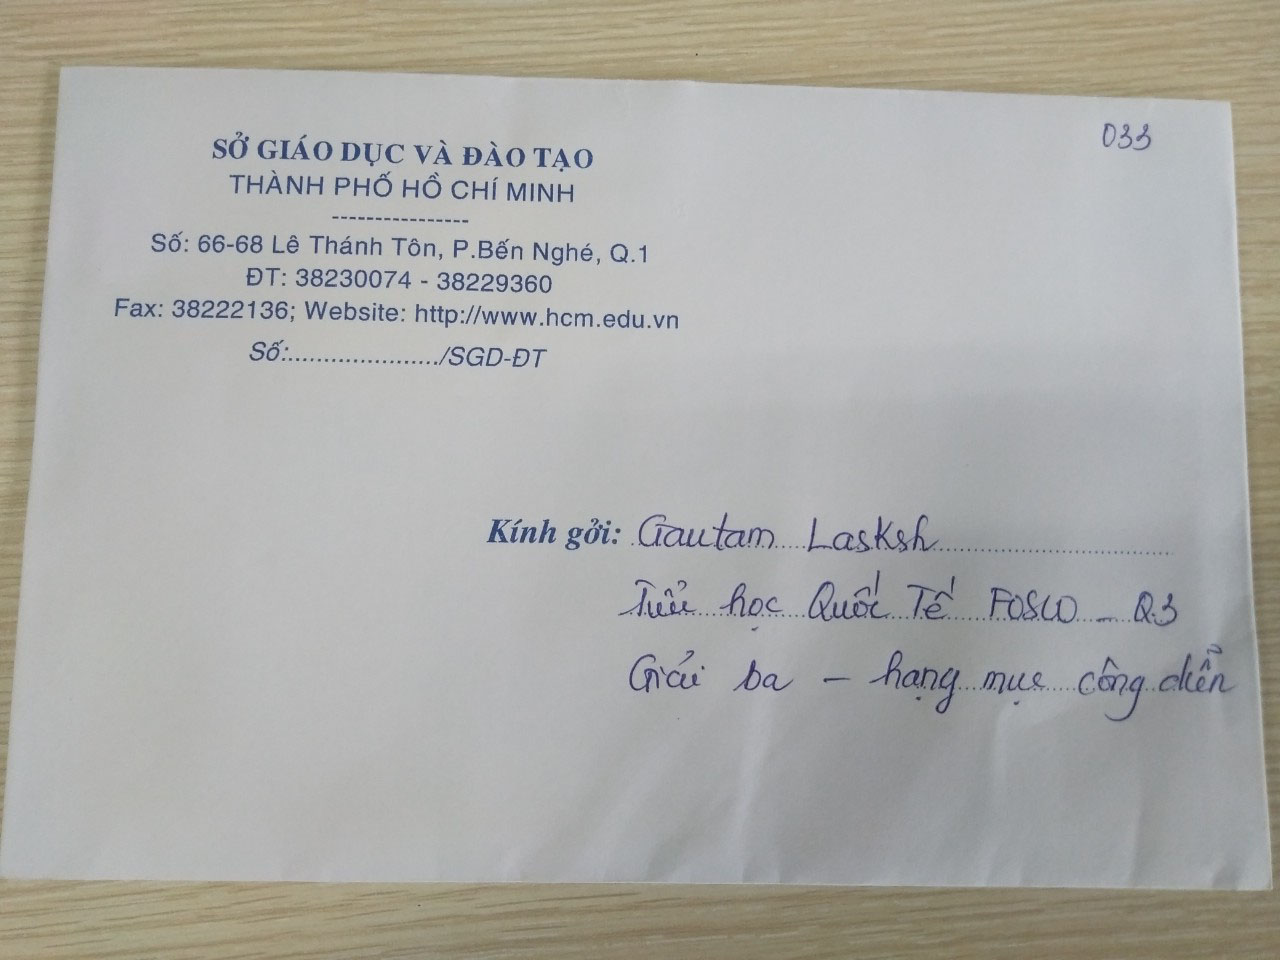 033
SỞ GIÁO DỤC VÀ ĐÀO TẠO
THÀNH PHỐ HỒ CHÍ MINH
----------------
Số: 66-68 Lê Thánh Tôn, P.Bến Nghé, Q.1
ĐT: 38230074 - 38229360
Fax: 38222136; Website: http://www.hcm.edu.vn
Số:....................../SGD-ĐT
Kính gởi: Gautam Lasksh
Tiểu học Quốc Tế FOSCO - Q.3
Giải ba - hạng mục công diễn